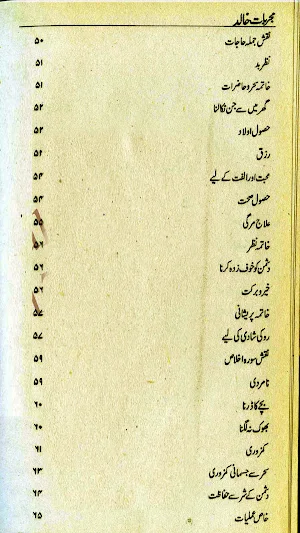 مجربات خالد
نقش جملہ حاجات ۵۰
نظر بد ۵۱
خاتمہ سحر و حاضرات ۵۱
گھر میں سے جن نکالنا ۵۲
حصول اولاد ۵۲
رزق ۵۲
محبت اور الفت کے لیے ۵۴
حصول صحت ۵۴
علاج مرگی ۵۵
خاتمہ نظر ۵۶
دشمن کو خوف زدہ کرنا ۵۶
خیر و برکت ۵۶
خاتمہ پریشانی ۵۷
روکی شادی کی لیے ۵۷
نقش سورہ اخلاص ۵۹
نامردی ۵۹
بچے کا ڈرنا ۶۰
بھوک نہ لگنا ۶۰
کمزوری ۶۱
سحر سے جسمانی کمزوری ۶۳
دشمن کے شر سے حفاظت ۶۴
خاص عملیات ۶۵